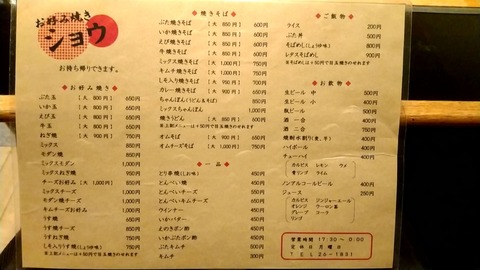 お好み焼き
ショウ
お持ち帰りできます。
◆ お好み焼き ◆
ぶた玉 [大 800円] 650円
いか玉 [大 800円] 650円
えび玉 [大 800円] 650円
牛玉 [大 800円] 650円
ねぎ焼 [大 900円] 750円
ミックス 850円
モダン焼 850円
ミックスモダン 1,000円
ミックスねぎ焼 950円
チーズお好み [大 1,000円] 850円
ミックスチーズ
モダン焼チーズ
キムチーお好み
うす焼 450円
うす焼チーズ 650円
うすねぎ焼
しそ入りうす焼(しょうゆ味)
※上記メニューは+50円で目玉焼きのせれます
◆ 焼きそば ◆
ぶた焼きそば [大 850円] 600円
いか焼きそば [大 850円] 600円
えび焼きそば [大 850円] 600円
牛焼きそば [大 850円] 600円
ミックス焼きそば [大 1,000円] 750円
キムチ焼きそば [大 1,000円] 750円
しそ入り焼きそば [大 900円] 650円
カレー焼きそば [大 900円] 650円
ちゃんぽん(うどん&そば) [大 850円]
ミックスちゃんぽん 1,000円
焼きうどん [大 850円]
※上記メニューは+50円で目玉焼きのせれます
オムそば [大 1,000円] 750円
オムチーズそば 950円
◆ 一品 ◆
とり串焼(しお味)
とんぺい焼
とんぺいチーズ 550円
とんぺいキムチ 550円
ウインナー
いかバター
えのきポン酢
いかぶたポン酢
ぶたキムチ
キムチ 300円
◆ ご飯物 ◆
ライス 200円
ぶた丼 500円
そばめし(しょうゆ味) 800円
レタスそばめし 900円
※そばめしは+50円で目玉焼きのせれます
◆ お飲物 ◆
生ビール 中 500円
生ビール 小 400円
瓶ビール
酒 一合 400円
酒 二合 750円
焼酎水割り(麦、芋) 400円
ハイボール 400円
チューハイ 400円
カルピス レモン ウメ
青リンゴ ライム
ノンアルコールビール 400円
ジュース 250円
カルピス ジンジャーエール
オレンジ ウーロン茶
グレープ コーラ
リンゴ
営業時間 17:30〜0:00
定休日 月曜日
TEL 26-1831